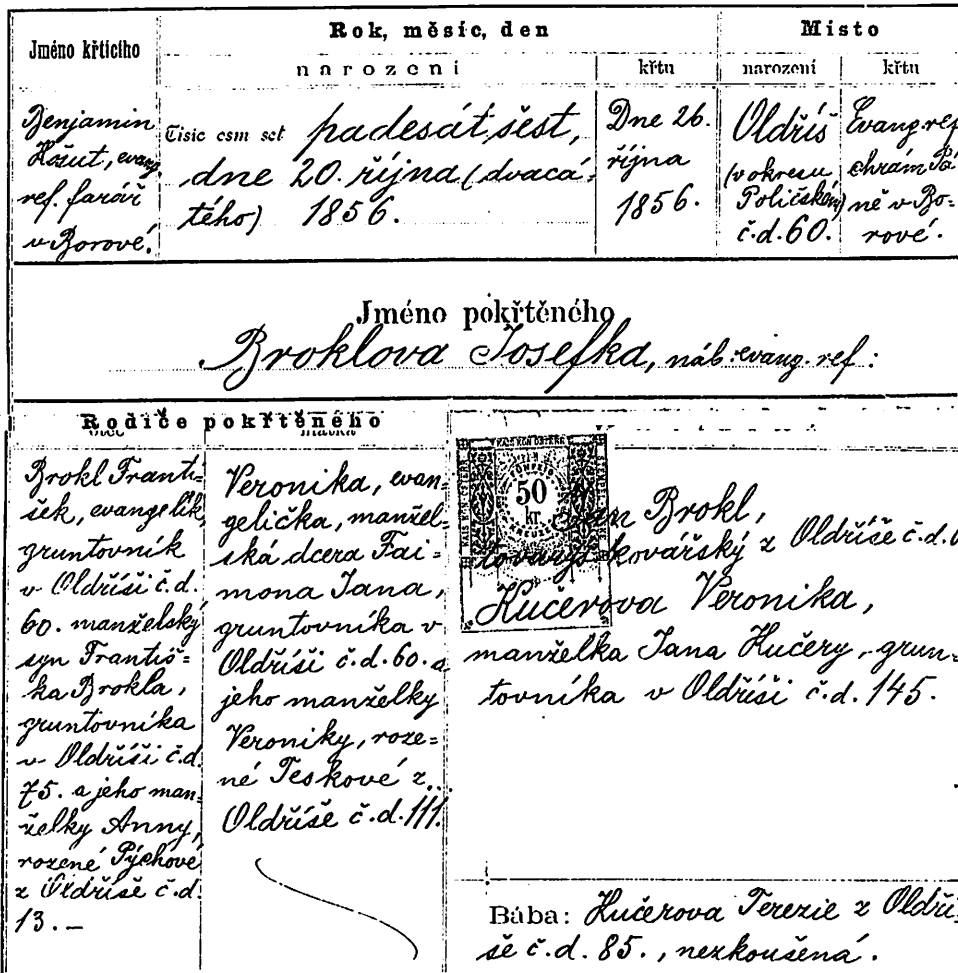 Rok, měsíc, den
Místo
Jméno křticího
narození
křtu
narození
křtu
Benjamin
Košut, evang.
ref. farář
v Borové.
Tisíc osm set padesát šest,
dne 20. října (dvacá-
tého) 1856.
Dne 26.
října
1856.
Oldříš
(v okresu
Poličském)
č.d. 60.
Evang. ref.
chrám Pá-
ně v Bo-
rové.
Jméno pokřtěného
Broklova Josefka, náb. evang. ref:
Rodiče pokřtěného
otec
matka
Brokl Franti-
šek, evangelík,
gruntovník
v Oldříši č.d.
60. manželský
syn Františ-
ka Brokla,
gruntovníka
v Oldříši č.d.
75. a jeho man-
želky Anny,
rozené Pýchové
z Oldříše č.d.
13. -
Veronika, evan-
gelička, manžel-
ská dcera Fai-
mona Jana,
gruntovníka v
Oldříši č.d. 60. a
jeho manželky
Veroniky, roze-
né Teskové z
Oldříše č.d. 111.
50
kr.
Brokl,
tovaryš kovářský z Oldříše č.d.
Kučerova Veronika,
manželka Jana Kučery, grun-
tovníka v Oldříši č.d. 145.
Bába: Kučerova Terezie z Oldří-
še č.d. 85., nezkoušená.